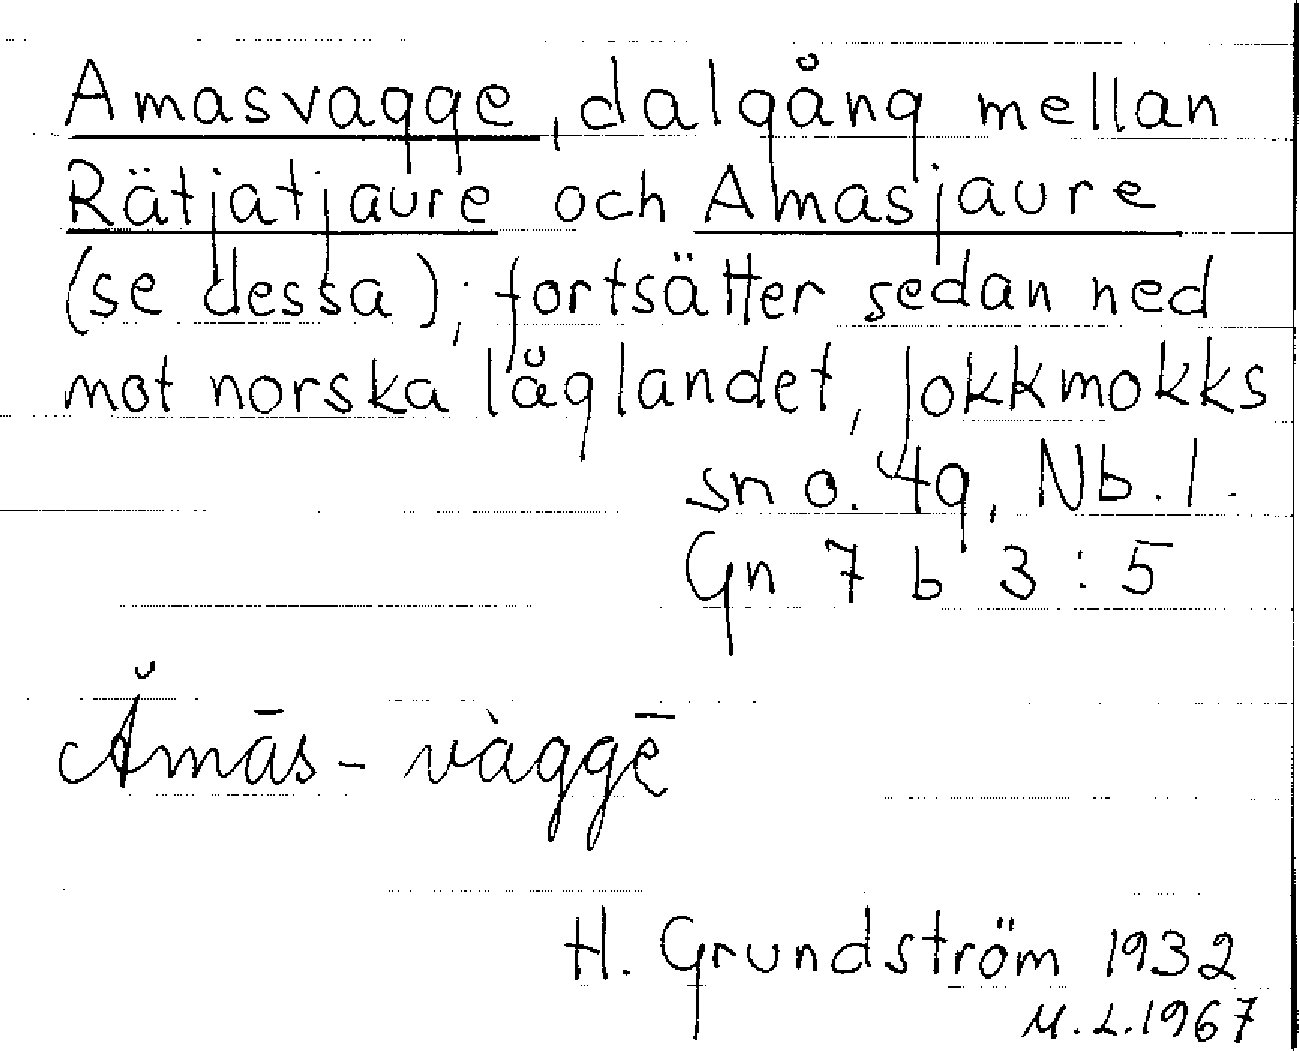 Amasvagge, dalgång mellan
Rätjatjaure och Amasjaure
(se dessa); fortsätter sedan ned
mot norska låglandet, Jokkmokks
sn o. 4g, Nb. l.
Gn 7 b 3:5
Ămās-vàggē
H. Grundström 1932
M.L. 1967